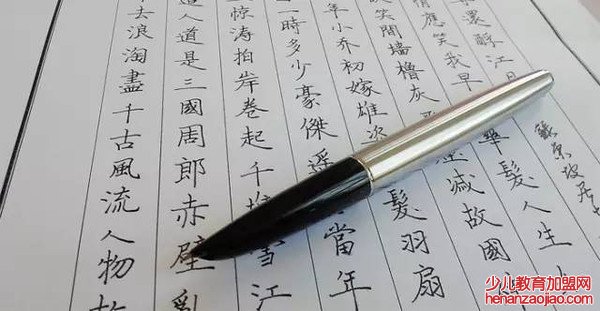 去浪淘盡千古風流人物故
人道是三國周郎赤壁亂
惊涛拍岸卷起千堆雪江
一時多少豪傑遥當年
年小乔初嫁雄姿髮羽扇
笑間墙櫓灰滅故國
情應笑我早華髮人生
還酹江月
少儿教育加盟网
henanzaojiao.com